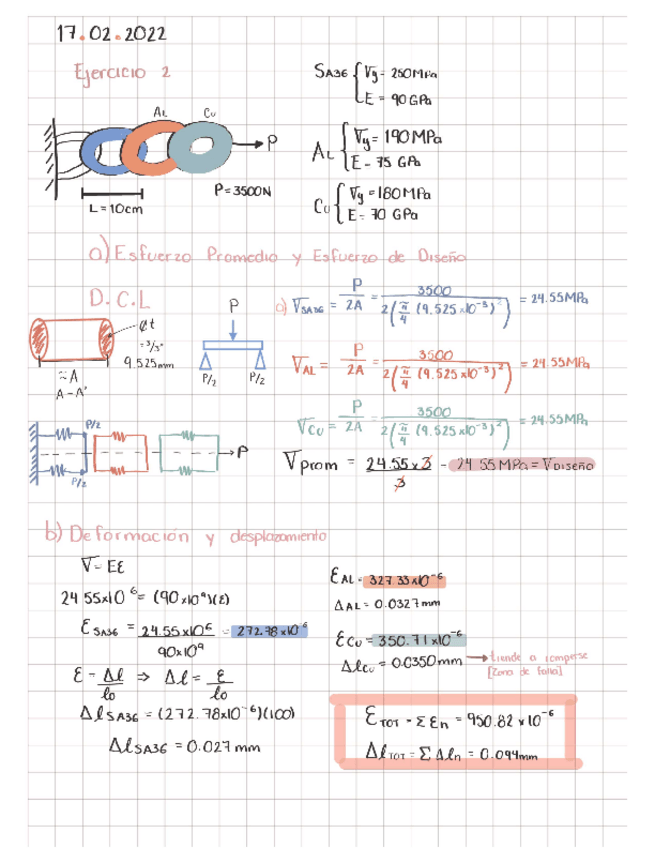 17.02.2022
Ejercicio 2
SA36 { Vy= 250MPa
E = 90 GPa
AL Cu
P
P=3500N
L=10cm
AL { Vy= 190MPa
E= 75 GPa
Cu { Vy=180MPa
E= 70 GPa
a) Esfuerzo Promedio y Esfuerzo de Diseño
D.C.L
Øt
= 3/8"
9.525mm
≈A
A-A'
P
P/2 P/2
a) VSA36 = P/2A = 3500/2(π/4 (9.525x10⁻³)²) = 24.55MPa
VAL = P/2A = 3500/2(π/4 (9.525x10⁻³)²) = 24.55MPa
VCU = P/2A = 3500/2(π/4 (9.525x10⁻³)²) = 24.55MPa
P/2
P
P/2
Vprom = 24.55x3/3 = 24.55MPa = VDiseño
b) Deformación y desplazamiento
V= Eε
24.55x10⁶= (90x10⁹)(ε)
εSA36 = 24.55x10⁶/90x10⁹ = 272.78x10⁻⁶
ε = Δl/lo ⇒ Δl = ε/lo
ΔlSA36 = (272.78x10⁻⁶)(100)
ΔlSA36 = 0.027mm
εAL= 327.33x10⁻⁶
ΔAL= 0.0327mm
εCu= 350.71x10⁻⁶
Δlcu = 0.0350mm → tiende a romperse
[Zona de falla]
εTOT = Σεn = 950.82 x10⁻⁶
ΔlTOT= ΣΔln = 0.094mm